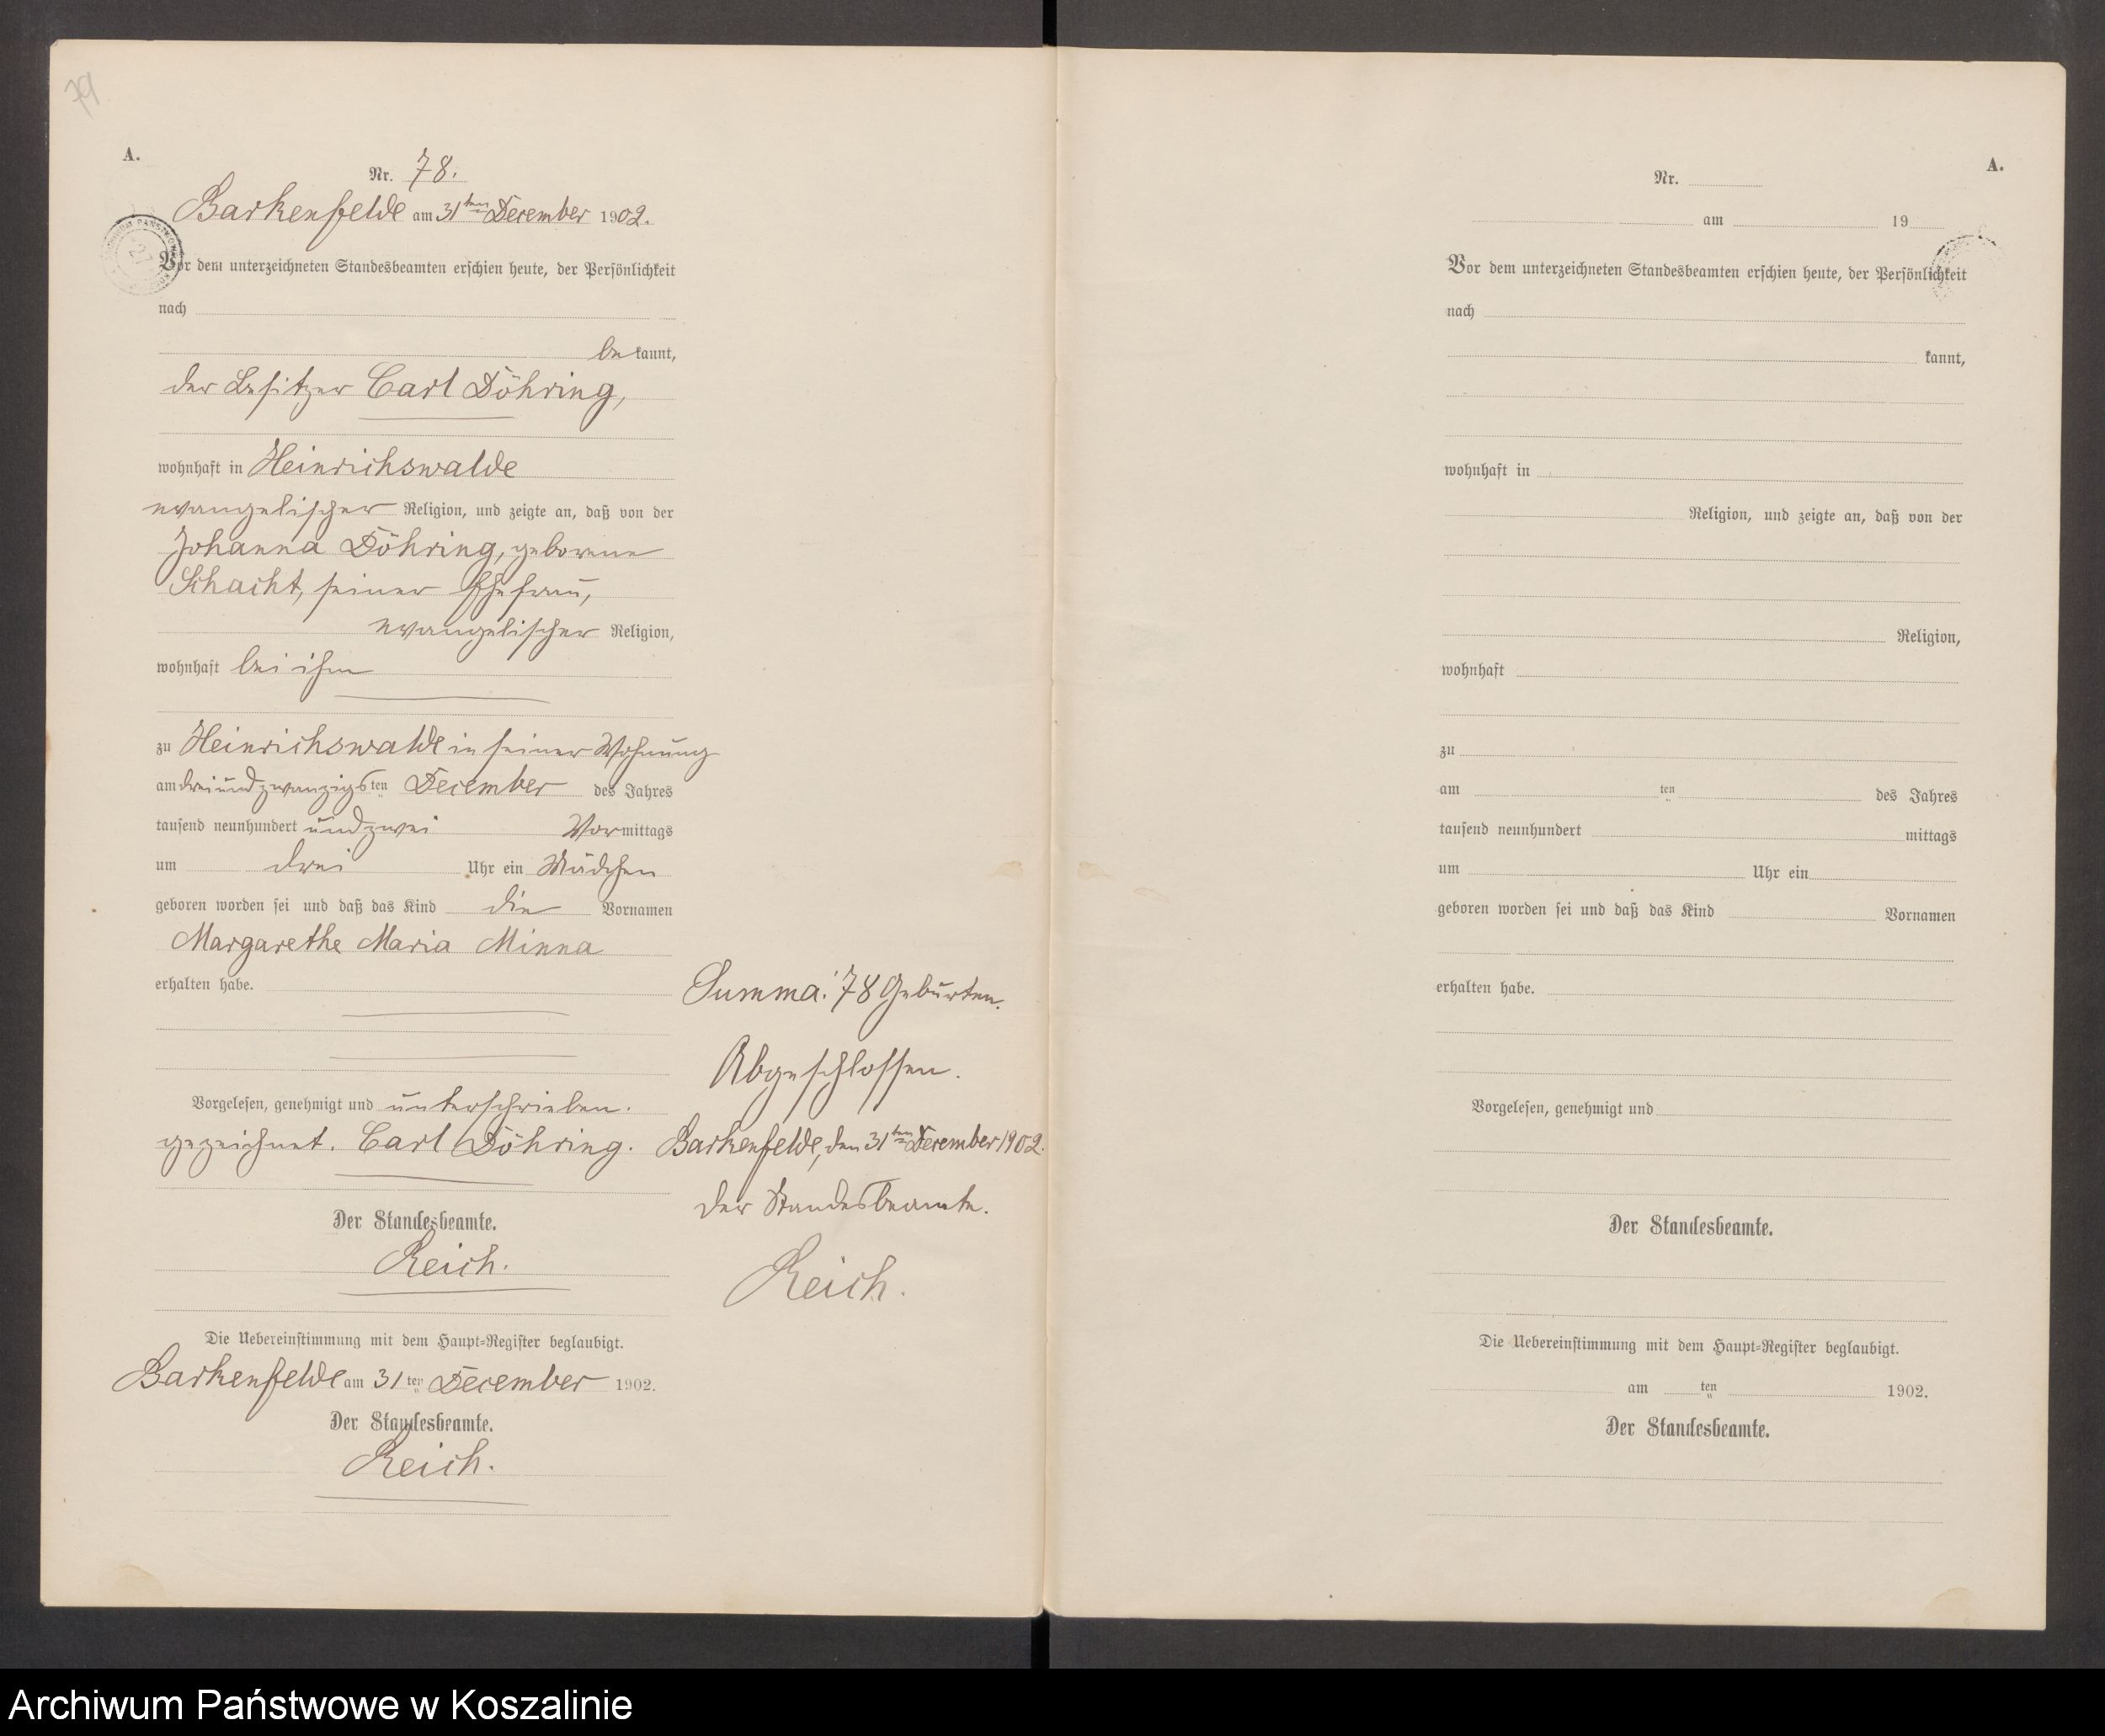 79
A.
Nr. 78.
Barkenfelde am 31ten December 1902.
Vor dem unterzeichneten Standesbeamten erschien heute, der Persönlichkeit
nach
bekannt,
der Besitzer Carl Döhring,
wohnhaft in Heinrichswalde
evangelischer Religion, und zeigte an, daß von der
Johanna Döhring, geborene
Schacht, seiner Ehefrau,
evangelischer Religion,
wohnhaft bei ihm
zu Heinrichswalde in seiner Wohnung
am dreiundzwanzigsten December des Jahres
tausend neunhundert und zwei Vormittags
um drei Uhr ein Mädchen
geboren worden sei und daß das Kind die Vornamen
Margarethe Maria Minna
erhalten habe.
Vorgelesen, genehmigt und unterschrieben.
gezeichnet. Carl Döhring.
Der Standesbeamte.
Reich.
Die Uebereinstimmung mit dem Haupt-Register beglaubigt.
Barkenfelde am 31ten December 1902.
Der Standesbeamte.
Reich.
Summa: 78 Geburten.
Abgeschlossen.
Barkenfelde, den 31ten December 1902.
Der Standesbeamte.
Reich.
A.
Nr.
am 19
Vor dem unterzeichneten Standesbeamten erschien heute, der Persönlichkeit
nach
kannt,
wohnhaft in
Religion, und zeigte an, daß von der
Religion,
wohnhaft
zu
am ten des Jahres
tausend neunhundert mittags
um Uhr ein
geboren worden sei und daß das Kind Vornamen
erhalten habe.
Vorgelesen, genehmigt und
Der Standesbeamte.
Die Uebereinstimmung mit dem Haupt-Register beglaubigt.
am ten 1902.
Der Standesbeamte.
Archiwum Państwowe w Koszalinie